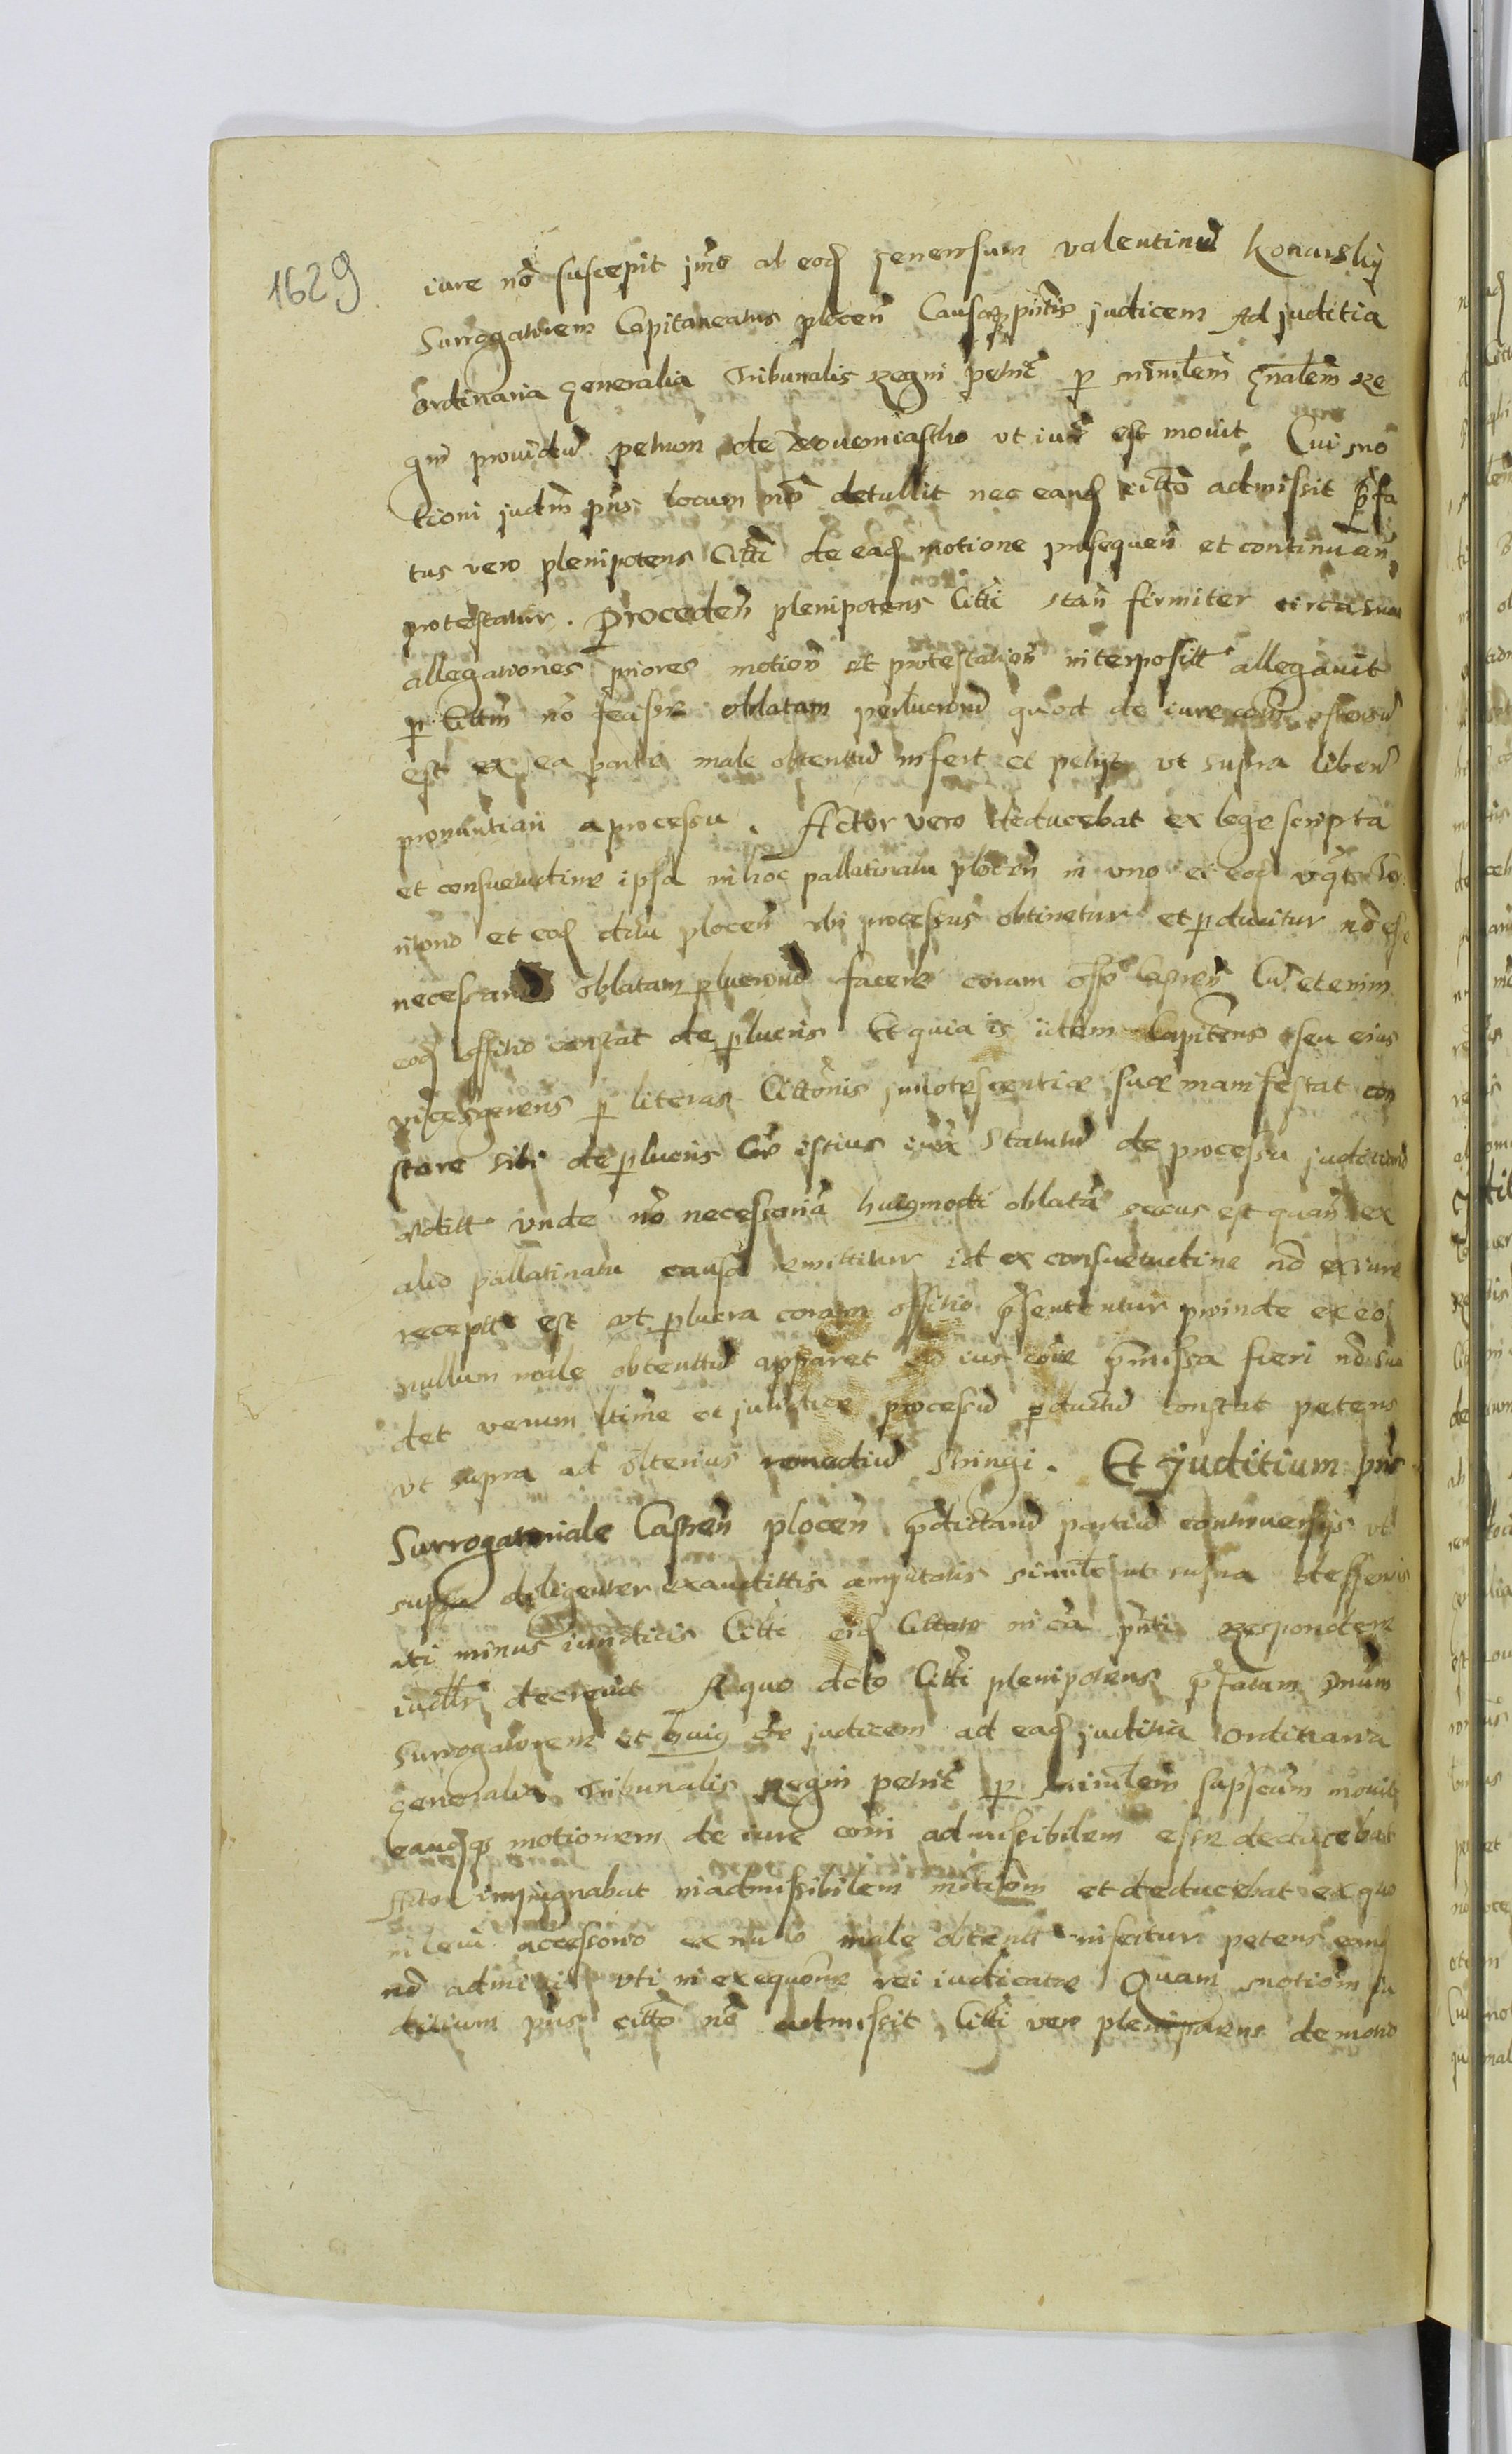 1629
iure nõ suscepit jmõ ab eod generosum Valentinũ Konarskÿ
Surrogatorem Capitaneatus plocen̄ Causaeq pn̄tis judicem Ad juditia
ordinaria generalia Tribunalis Regni petric̄ p minr̄lem gn̄alem Re
gni providũ petrum de Novemiastho ut iur̄ est movit Cui mo
tioni judm̄ pn̄s locum nõ detullit nec eand citto admissit p̄fa
tus vero plenipotens Citti de ead motione prosequen̄ et continuan̄
protestatur. Proceden̄ plenipotens Citti stan̄ firmiter circa suas
allegationes priores motion̄ et protestation̄ interposit allegavit
p Cittm̄ nõ fecisse oblatam perlucrorũ quod de iure com̄ ostensũ
est ex ea parte male obtentũ infert et petijt ut supra liberũ
pronuntiari a processu. Actor vero deducebat ex lege scripta
et consuetudine ipsa in hoc pallatinatu plocen̄ in uno et eod
in uno et eod plocen̄ ubi processus obtinetur et pducitur nõ esse
necessariũ oblatam plucrorũ facere coram offo Castren̄ Cũ etenim
eod offitio constat de plucris Et quia is idem Capitens seu eius
vicesgerens p literas Cittonis innotescentiae suae manifestat con
stare sibi de plucris istius iuxa statutũ de processu juditiario
unde nõ necessariã huiqmodi oblatã secus est quan̄ ex
alio pallatinatu causa remittitur id ex consuetudine nõ ex iure
receptũ est ut plucra coram offitio p̄sententur proinde ex eo
nullum male obtentũ apparet ius com̄e p̄missa fieri nõ sua
det verum ltime et juridice processũ pductũ constat petens
ut supra ad ulterius remediũ stringi. Et Juditium pn̄s
Surrogatoriale Castren̄ plocen̄ p̄dictarũ partiũ controversijs ut
supra diligenter exaudittis amputatis ut supra deffensis
uti minus iuridicis Citti eid Cittato in cã pn̄ti Respondere
decrevit A quo dcto Citti plenipotens p̄fatam gn̄um
Surrogatorem et huiq cae judicem ad ead juditia Ordinaria
generalia Tribunalis Regni petric̄ p minr̄lem supscum movit
eandq motionem de iure com̄i admissibilem esse deducebat
Actor impugnabat inadmissibilem motiom̄ et deducebat ex quo
in levi accessorio ex nullo male obtentũ infertur petens eand
nõ admitti uti in exequone rei iudicatae Quam motiom̄ ju
ditium pn̄s citto nõ admissit Citti vero plenipotens de motio